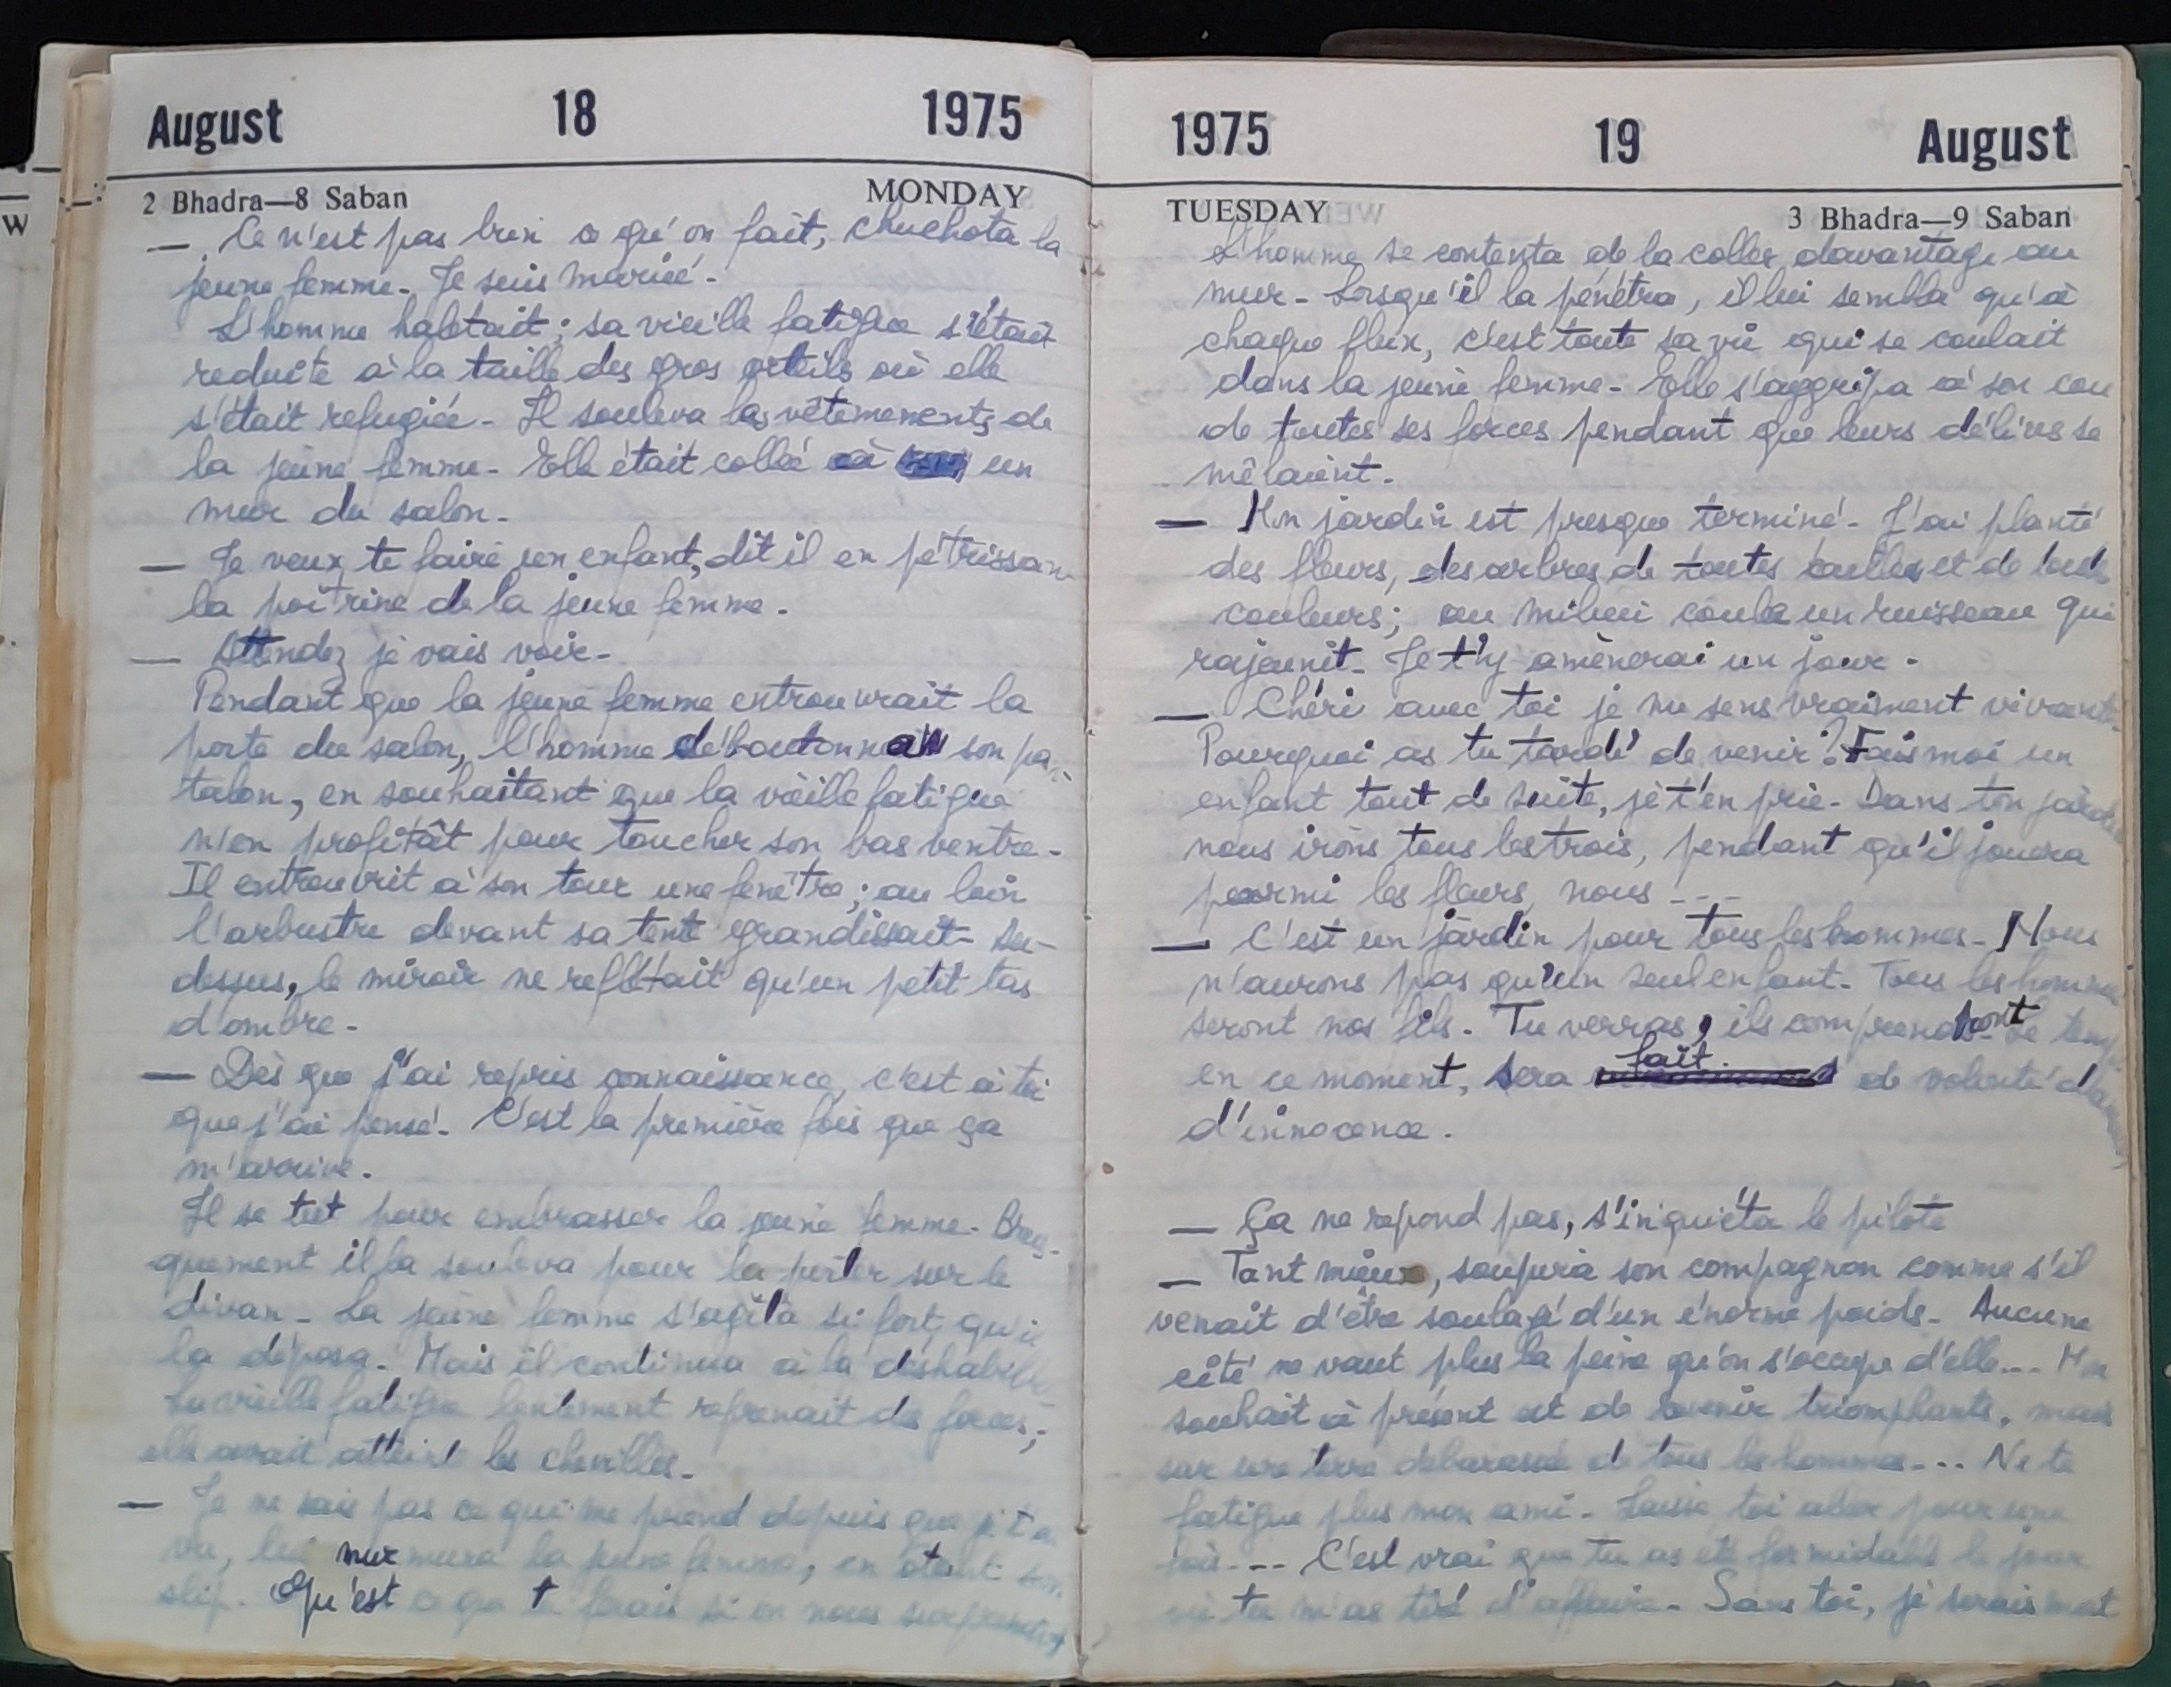 August 18 1975
2 Bhadra—8 Saban MONDAY
— Ce n'est pas bien ce qu'on fait, chuchota la
jeune femme. Je suis mariée.
L'homme haletait ; sa vieille fatigue s'était
reduite à la taille des gros orteils où elle
s'était refugiée. Il souleva les vêtements de
la jeune femme. Elle était collée à un
mur du salon.
— Je veux te faire un enfant, dit il en pétrissant
la poitrine de la jeune femme.
— Attendez je vais voir.
Pendant que la jeune femme entrouvrait la
porte du salon, l'homme déboutonnait son pan-
talon, en souhaitant que la vieille fatigue
n'en profitât pour toucher son bas ventre.
Il entrouvrit à son tour une fenêtre ; au loin
l'arbustre devant sa tente grandissait. Au-
dessus, le miroir ne reflétait qu'un petit tas
d'ombre.
— Dès que j'ai repris connaissance, c'est à toi
que j'ai pensé. C'est la première fois que ça
m'arrive.
Il se tut pour embrasser la jeune femme. Brus-
quement il la souleva pour la porter sur le
divan. La jeune femme s'agita si fort qu'il
la déposa. Mais il continua à la déshabiller
La vieille fatigue lentement reprenait des forces ;
elle avait atteint les chevilles.
— Je ne sais pas ce qui me prend depuis que je t'ai
vu, lui murmura la jeune femme, en ôtant son
slip. Qu'est ce que tu ferais si on nous surprenait
1975 19 August
TUESDAY 3 Bhadra—9 Saban
L'homme se contenta de la coller davantage au
mur. Lorsqu'il la pénétra, il lui sembla qu'à
chaque flux, c'est toute sa vie qui se coulait
dans la jeune femme. Elle s'aggripa à son cou
de toutes ses forces pendant que leurs délires se
mêlaient.
— Mon jardin est presque terminé. J'ai planté
des fleurs, des arbres de toutes tailles et de toutes
couleurs ; au milieu coule un ruisseau qui
rajeunit. Je t'y amènerai un jour.
— Chéri avec toi je me sens vraiment vivante.
Pourquoi as tu tardé de venir ? Fais moi un
enfant tout de suite, je t'en prie. Dans ton jardin
nous irons tous les trois, pendant qu'il jouera
parmi les fleurs, nous ---
— C'est un jardin pour tous les hommes. Nous
n'aurons pas qu'un seul enfant. Tous les hommes
seront nos fils. Tu verras, ils comprendront. Le temps
en ce moment, sera fait de volonté
d'innocence.
— Ça ne repond pas, s'inquiéta le pilote
— Tant mieux, soupira son compagnon comme s'il
venait d'être soulagé d'un énorme poids. Aucune
cité ne vaut plus la peine qu'on s'occupe d'elle... Mon
souhait à présent est de revenir triomphants, mais
sur une terre debarassée de tous les hommes... Ne te
fatigue plus mon ami. Laisse toi aller pour une
fois... C'est vrai que tu as été formidable le jour
où tu m'as tiré d'affaire. Sans toi, je serais mort